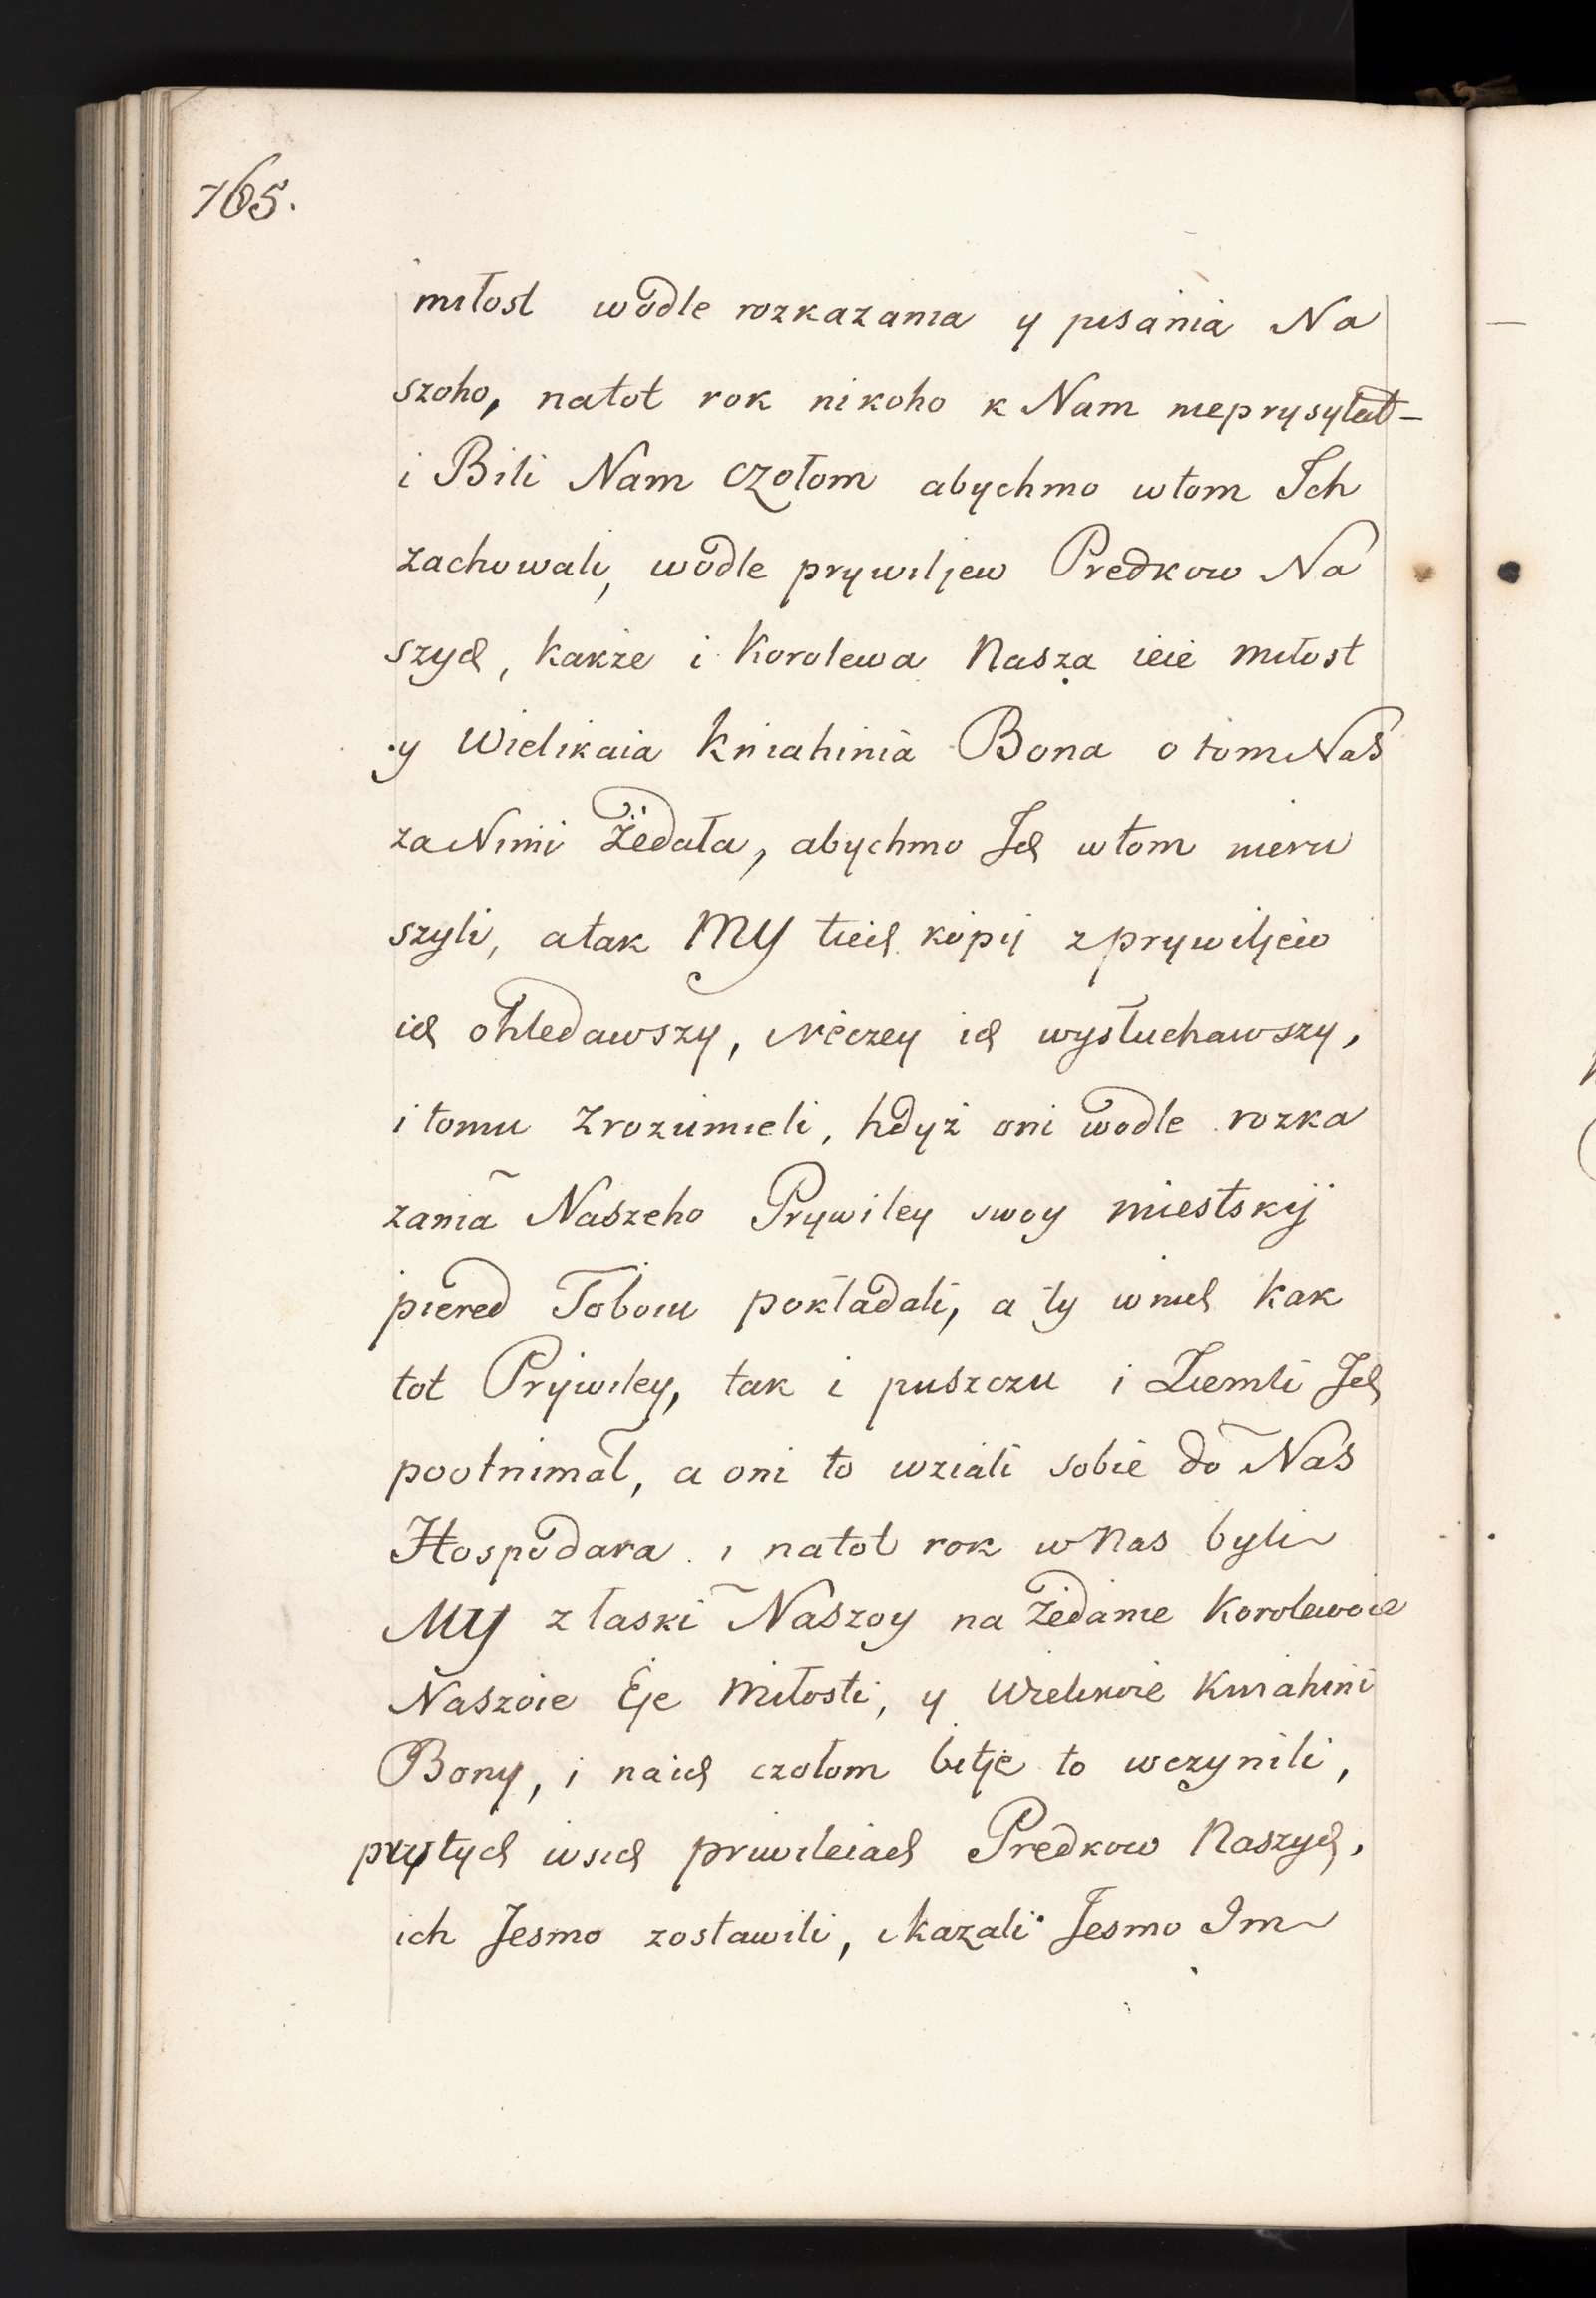 765.
miłost wodle rozkazania y pisania Na
szoho, natot rok nikoho k Nam nieprysyłał –
i Bili Nam czołom abychmo wtom Ich
zachowali, wodle prywiljew Predkow Na
szych, kakże i Korolewa Nasza ieie miłost
y Wielikaia Kniahinia Bona o tom Nas
za Nimi żedała, abychmo Ich wtom nieru
szyli, atak MY tiech kopij z prywiljew
ich ohledawszy, i reczey ich wysłuchawszy,
i tomu zrozumieli, hdyż oni wodle rozka
zania Naszeho Prywiley swoy miestskij
piered Toboiu pokładali, a ty w nich kak
tot Prywiley, tak i puszczu i Ziemli Ich
pootnimał, a oni to wziali sobie do Nas
Hospodara i natot rok w Nas byli
MY z łaski Naszoy na żedanie Korolewoie
Naszoie Eje Miłosti, y Wielikoie Kniahini
Bony, i naich czołom bitje to wczynili,
pry tych wsich priwileiach Predkow Naszych,
ich Jesmo zostawili, i kazali Jesmo Im